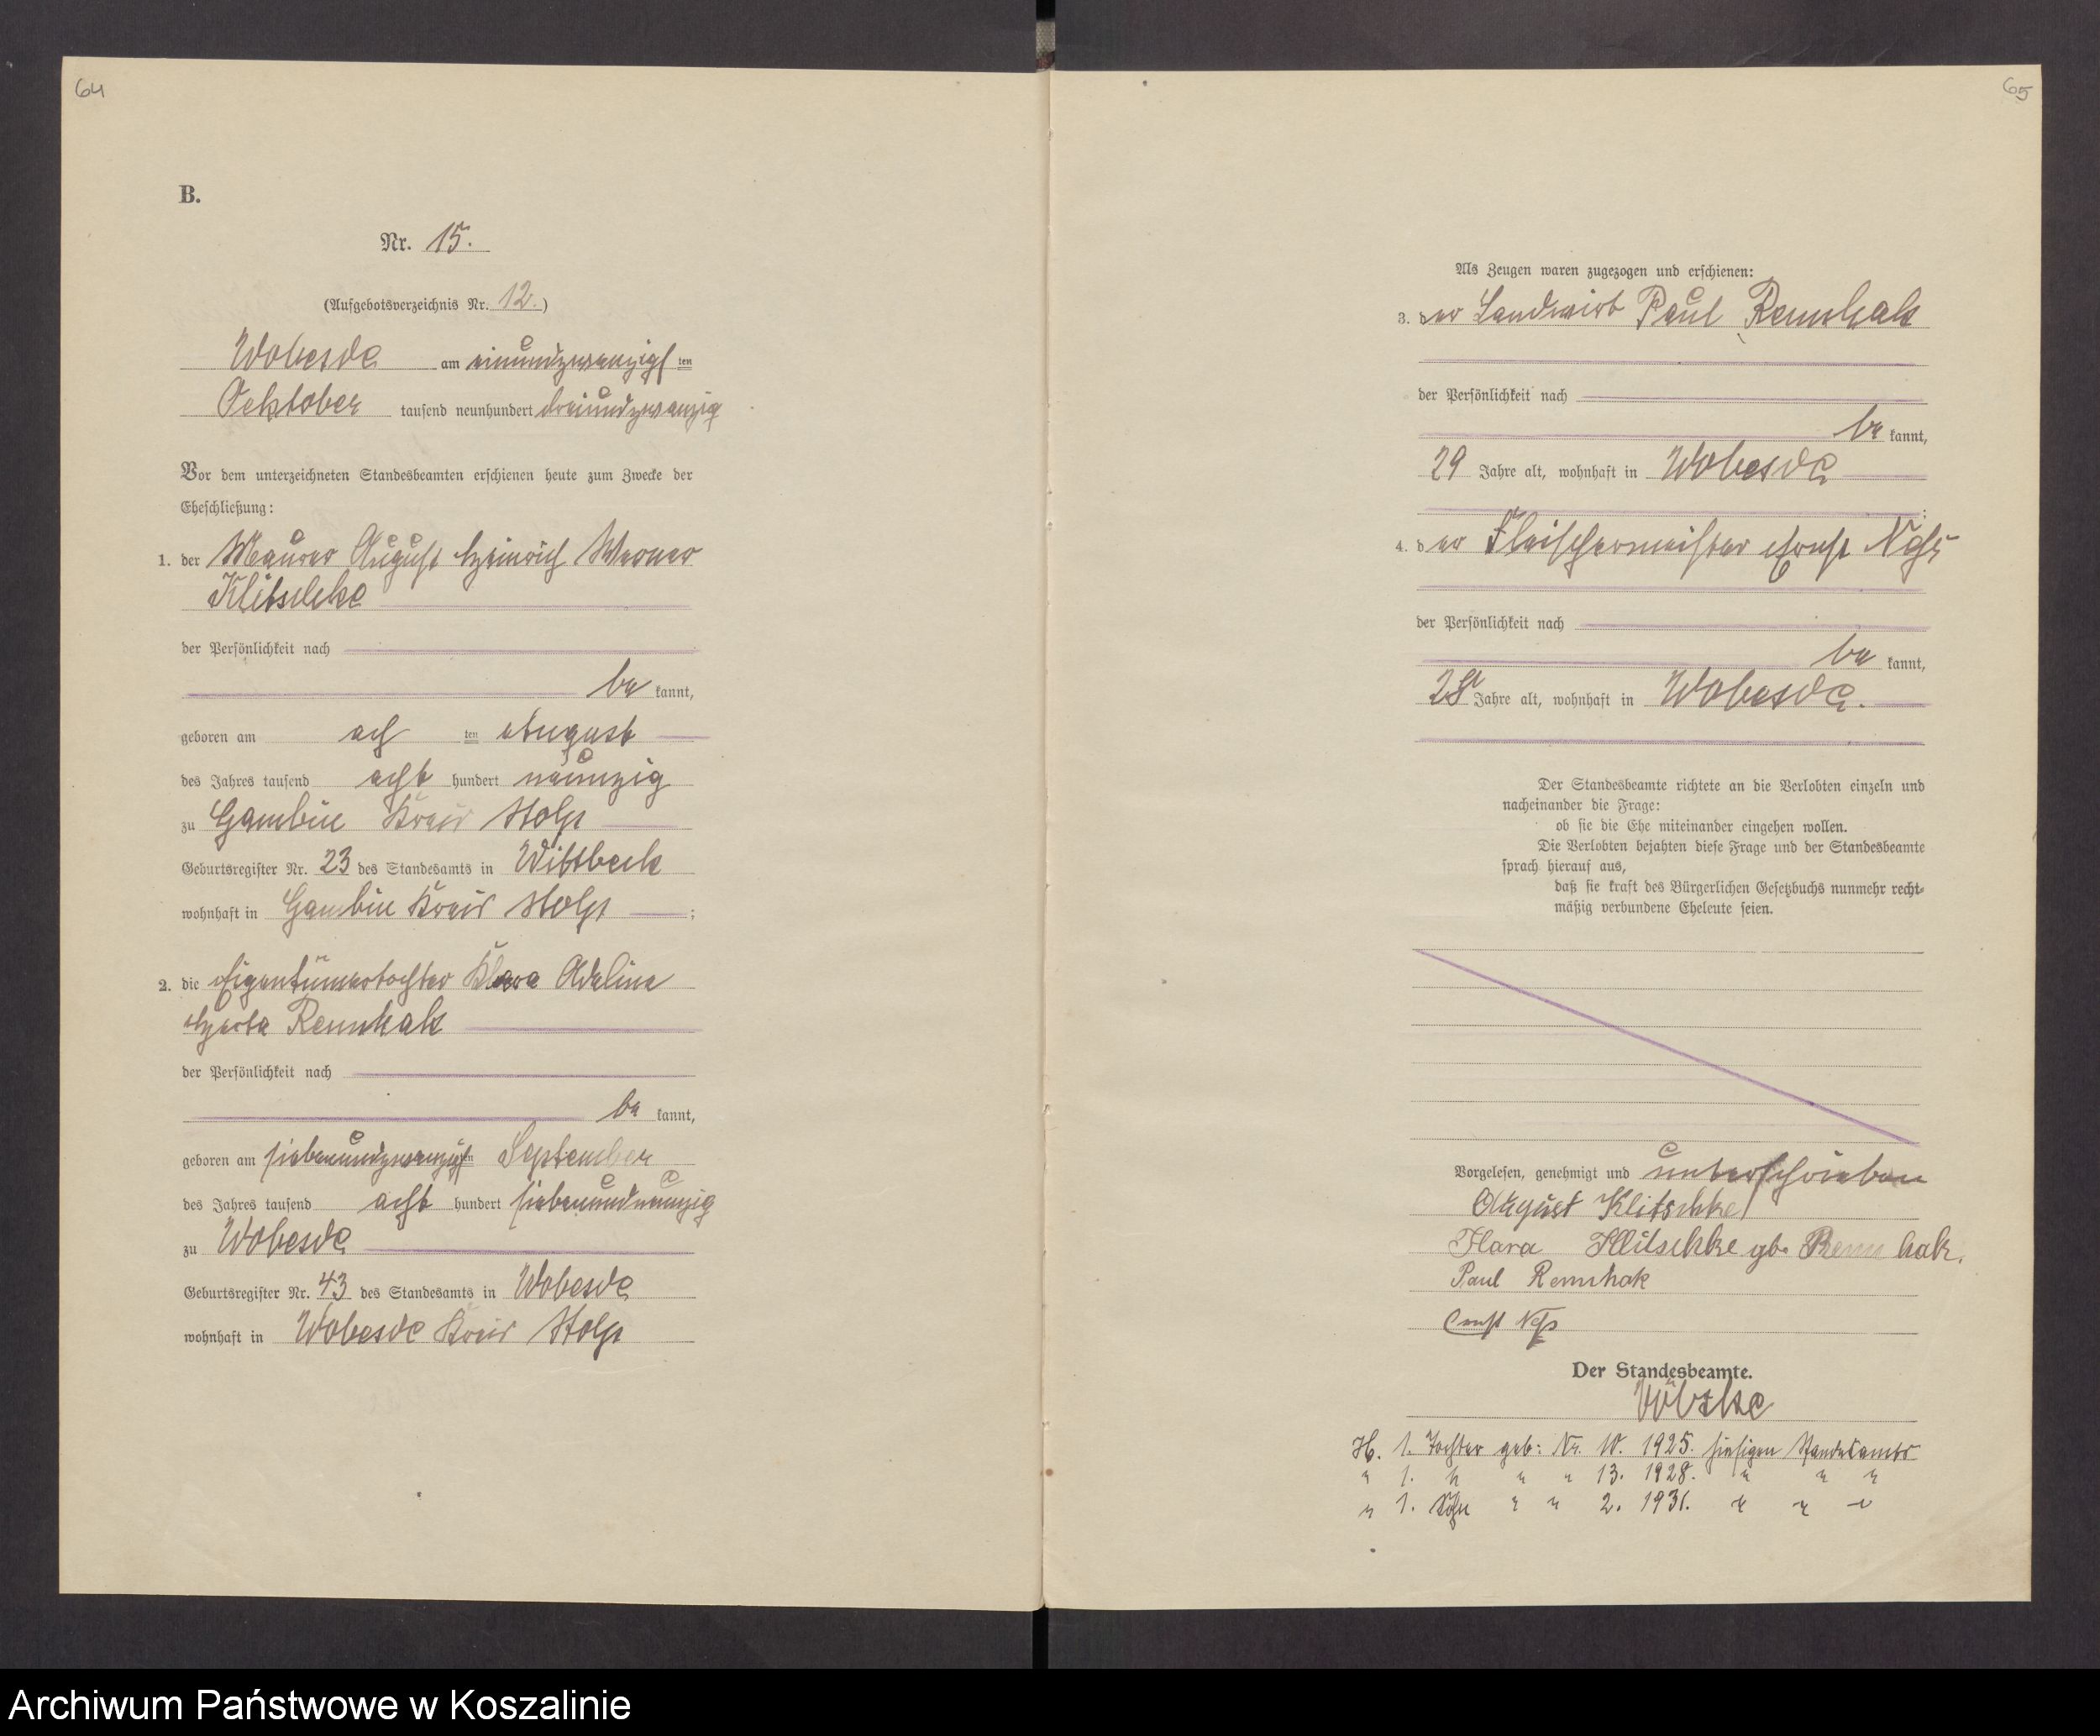 64
B.
Nr. 15.
(Aufgebotsverzeichnis Nr. 12.)
Wobesde am einundzwanzigsten
Oktober tausend neunhundert dreiundzwanzig
Vor dem unterzeichneten Standesbeamten erschienen heute zum Zwecke der
Eheschließung:
1. der Maurer August Heinrich Werner
Klitschke
der Persönlichkeit nach
be kannt,
geboren am ach ten August
des Jahres tausend acht hundert neunzig
zu Gambin Kreis Stolp
Geburtsregister Nr. 23 des Standesamts in Wittbeck
wohnhaft in Gambin Kreis Stolp ;
2. die Eigentümertochter Klara Adeline
Herta Rennhak
der Persönlichkeit nach
be kannt,
geboren am siebenundzwanzigsten September
des Jahres tausend acht hundert siebenundneunzig
zu Wobesde
Geburtsregister Nr. 43 des Standesamts in Wobesde
wohnhaft in Wobesde Kreis Stolp
65
Als Zeugen waren zugezogen und erschienen:
3. der Landwirt Paul Rennhak
der Persönlichkeit nach
be kannt,
29 Jahre alt, wohnhaft in Wobesde
;
4. der Fleischermeister Ernst
der Persönlichkeit nach
be kannt,
28 Jahre alt, wohnhaft in Wobesde.
Der Standesbeamte richtete an die Verlobten einzeln und
nacheinander die Frage:
ob sie die Ehe miteinander eingehen wollen.
Die Verlobten bejahten diese Frage und der Standesbeamte
sprach hierauf aus,
daß sie kraft des Bürgerlichen Gesetzbuchs nunmehr recht-
mäßig verbundene Eheleute seien.
Vorgelesen, genehmigt und unterschrieben
August Klitschke
Klara Klitschke gb. Rennhak.
Paul Rennhak
Ernst
Der Standesbeamte.
H. 1. Tochter geb: Nr. 10. 1925. hiesigen Standesamts
" 1. " " " 13. 1928. " " "
" 1. Sohn " " 2. 1931. " " "
Archiwum Państwowe w Koszalinie